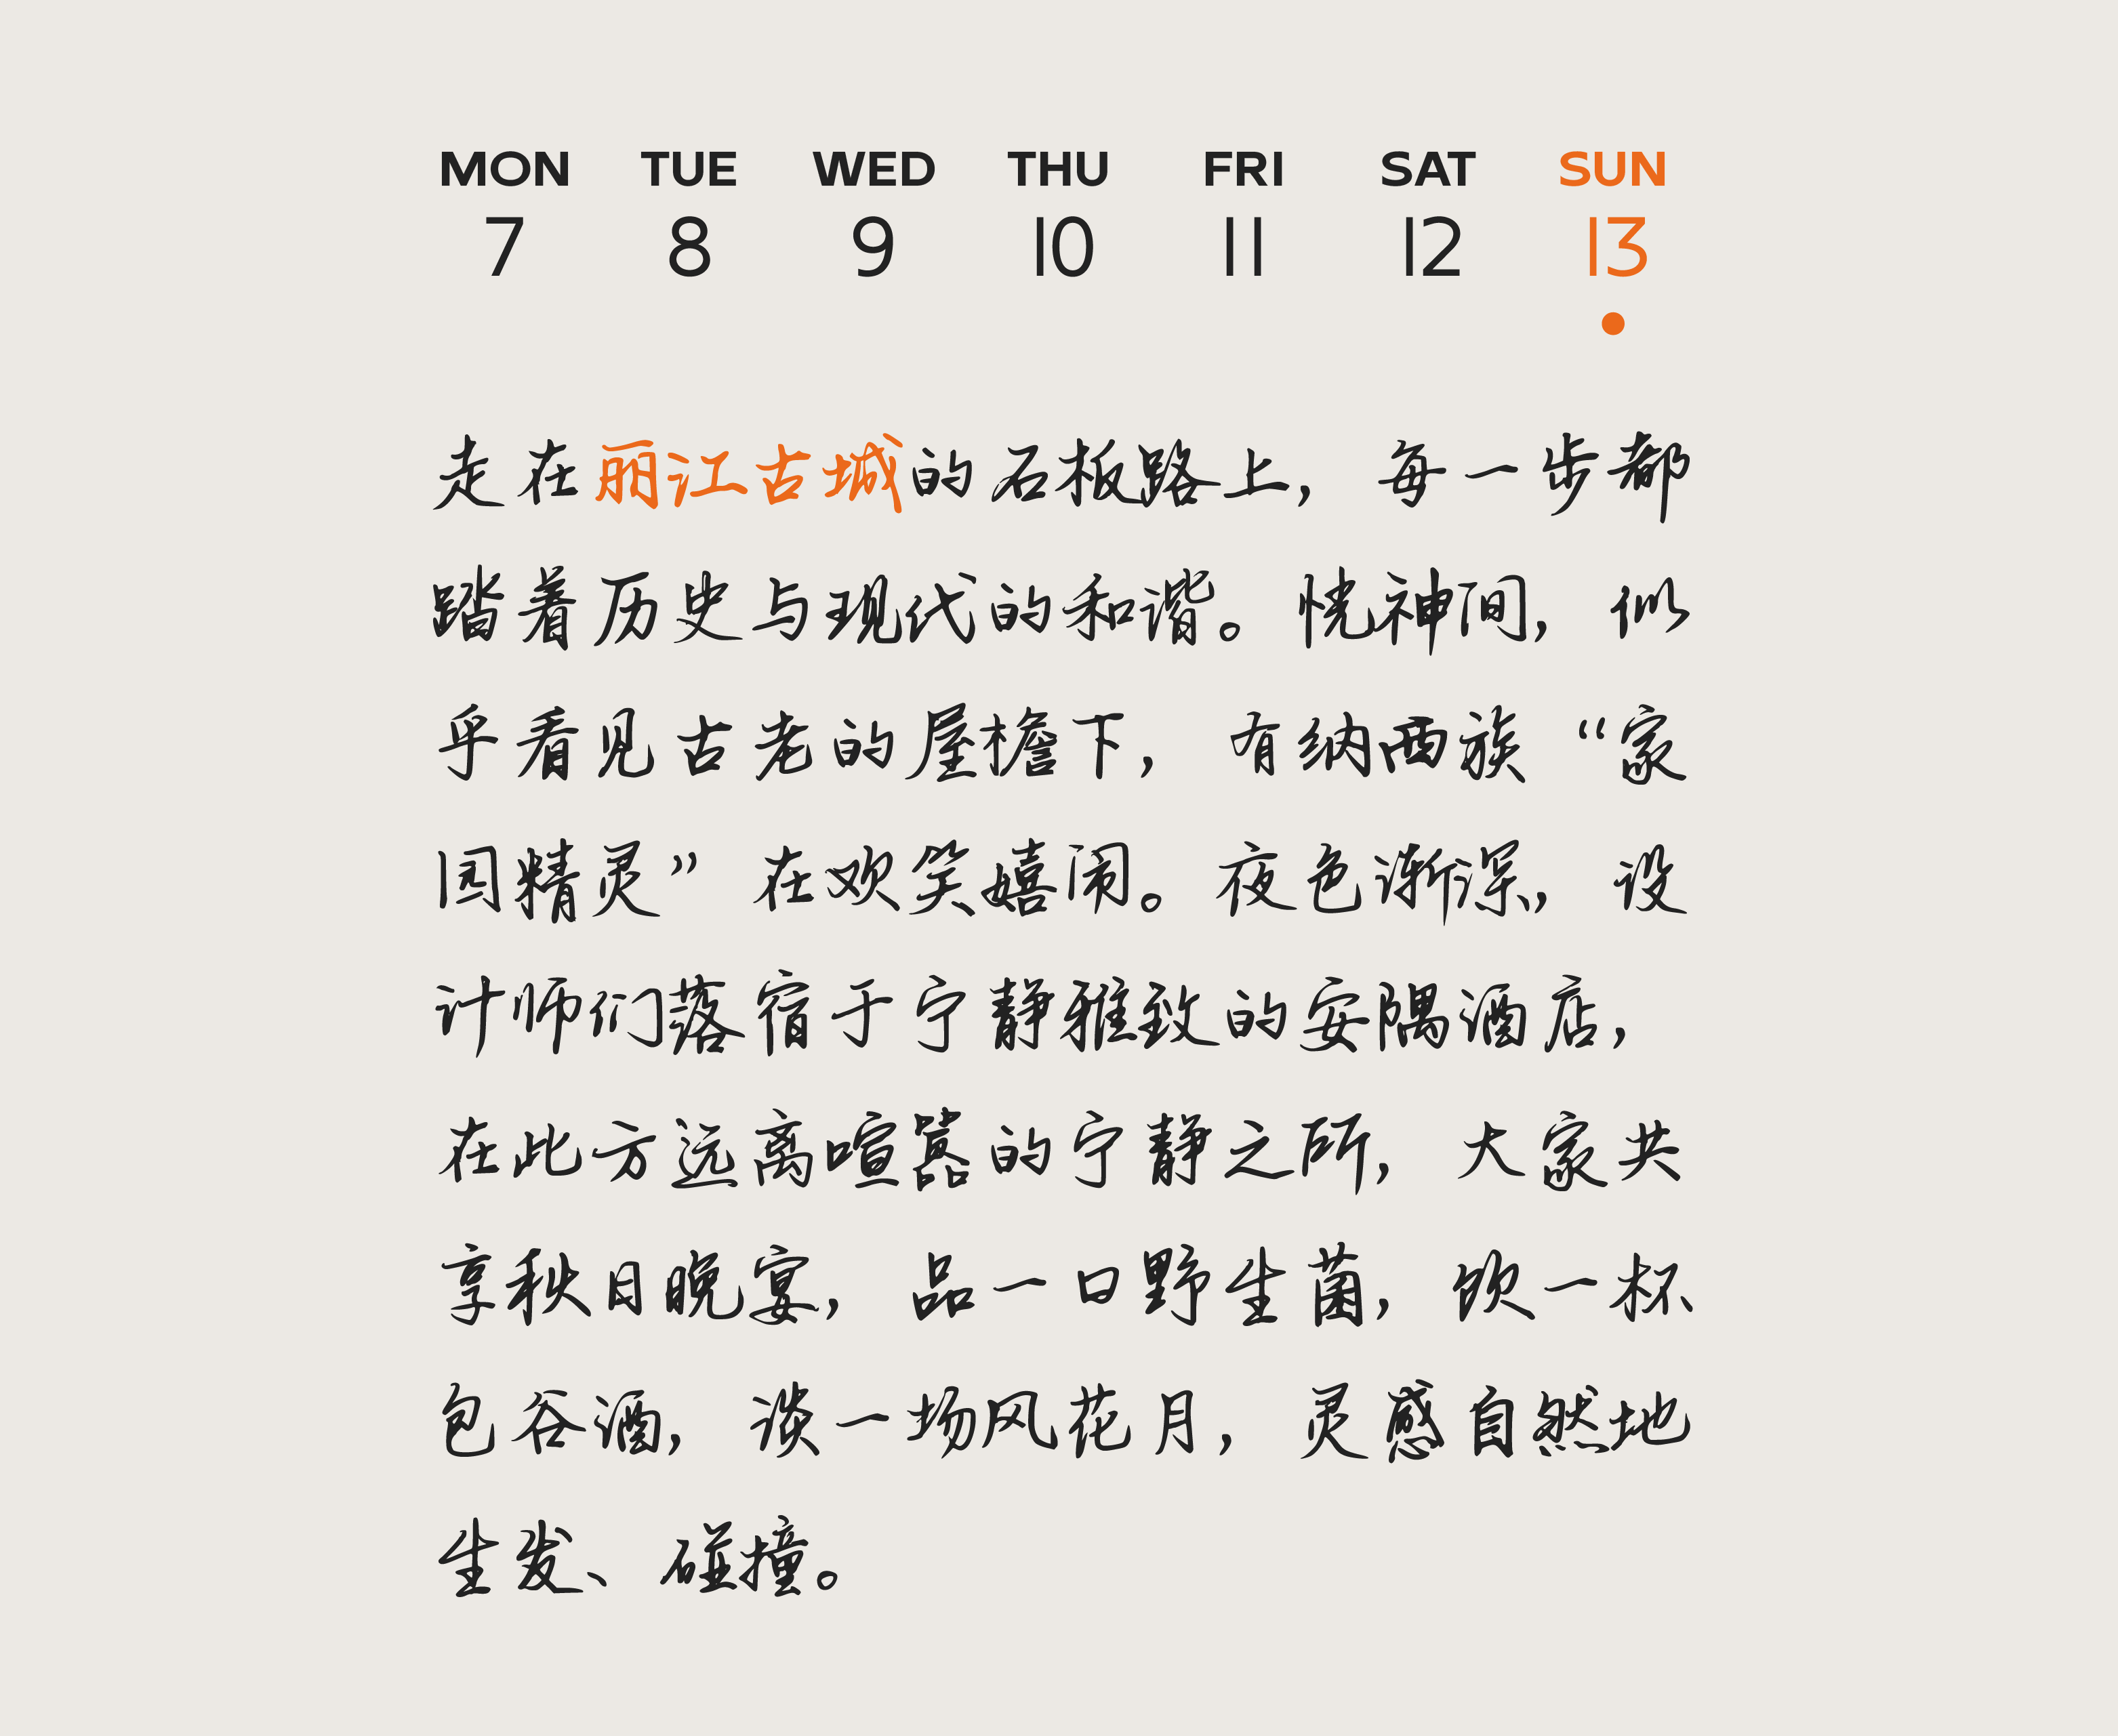 MON TUE WED THU FRI SAT SUN
7 8 9 10 11 12 13
走在丽江古城的石板路上，每一步都
踏着历史与现代的和谐。恍神间，似
乎看见古老的屋檐下，有纳西族“家
园精灵”在欢笑嬉闹。夜色渐深，设
计师们落宿于宁静雅致的安隅酒店，
在此方远离喧嚣的宁静之所，大家共
享秋日晚宴，品一口野生菌，饮一杯
包谷酒，谈一场风花月，灵感自然地
生发、碰撞。